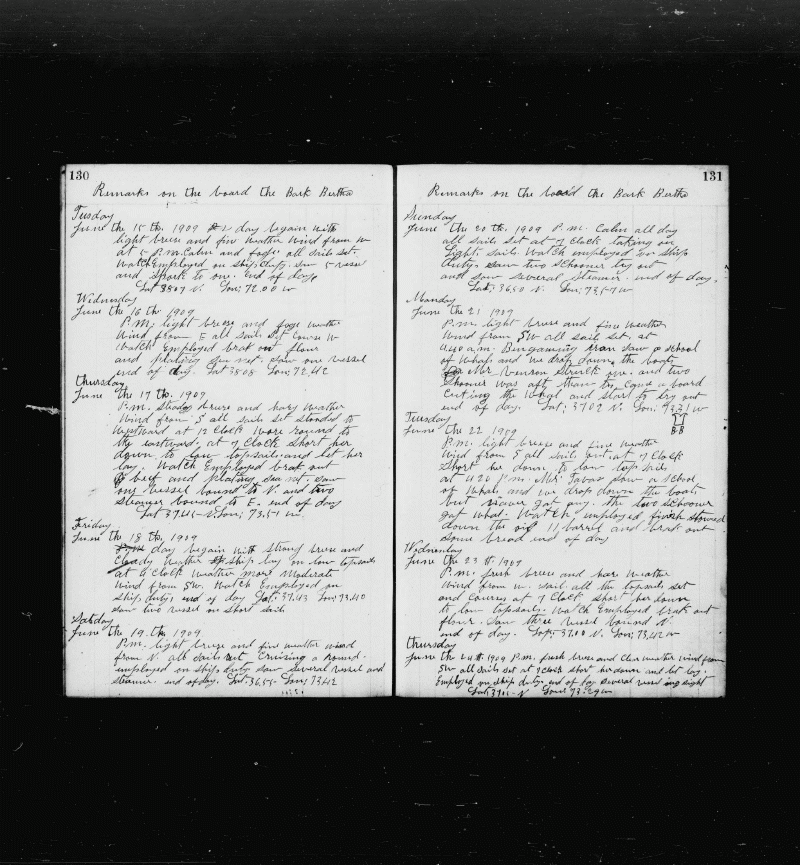 130
Remarks on the board the Bark Bertha
Tusday
June the 15 th. 1909 day begain with
light breese and fine weather wind from W
at 5 P.m. Calm and foge all sails set.
Watch Employed on ship duty. saw 5 vessel
and spork to one. end of day
Lat 38.07 N. Lon; 72.00 W
Wednusday
June the 16 th. 1909
P.M; light breese and foge weather
Wind from E all sails set Course W
Watch Employed brak out flour
and plating sea net. saw one vessel
end of day. Lat 38.08 Lon; 72.42
Thursday
June the 17 th. 1909
P.m. steady breese and hazy weather
Wind from S all sails set standed to
Westward at 12 Clock wore round to
the eastward. at 7 Clock short her
down to low topsails. and let her
lay. Watch Employed brak out
beef and plating sea net. saw
one vessel bound to N. and two
steamer bound to E. end of day
Lat 37.45 N. Lon; 73.51 W
Friday
June the 18 th. 1909
day begain with strong breese and
Cloudy weather ship lay on low topsails
at 4 Clock weather more Moderate
wind from SW. Watch Employed on
ship duty, end of day Lat; 37.43 Lon; 73.40
saw two vessel on short sails
Satday
June the 19 th. 1909
P.m. light breese and fine weather wind
from N. all sails set Cruising a round.
employed on ship duty saw several vessel and
steamer. end of day. Lat 36.55 Lon; 73.42
131
Remarks on the board the Bark Bertha
Sunday
June the 20 th. 1909 P.m. Calm all day
all sails set at 7 Clock taking in
Light, sails Watch employed on ship
duty. saw two schooner try out
and saw several steamer. end of day.
Lat; 36.50 N. Lon; 73.57 W
Monday
June the 21 1909
P.m. light breese and fine weather
Wind from SW all sail set. at
a.m. saw a school
of Whal, and we drop down the boats
Mr struck one. and two
shooner was aft them to, came a board
Cutting the Whal and start to try out
end of day. Lat; 37.02 N. Lon; W
BB
Tusday
June the 22 1909
P.m. light breese and fine weather
Wind from S all sails set. at 7 Clock
short he down to low top sails
at 4.20 P.m. Mr. saw a school
of Whals and we drop down the boats
but naver got any. the two schooner
got what. Watch employed finish stowed
down the oil 11, barrel and brak out
some bread. end of day
Wednesday
June the 23 th. 1909
P.m. fresh breese and haze weather
Wind from W. sail all the topsails set
and Courses at 7 Clock short her down
to low topsails. Watch Employed brak out
flour. saw three vessel bound N.
end of day. Lat; 37.00 N. Lon; 73.42 W
Thursday
June the 24 th. 1909 P.m. fresh breese and Clear weather wind from
SW all sails set at 7 Clock short her down and let lay.
Employed on ship duty. end of day several vessel ing sight
Lat; 37.11 N Lon; 73.29 W